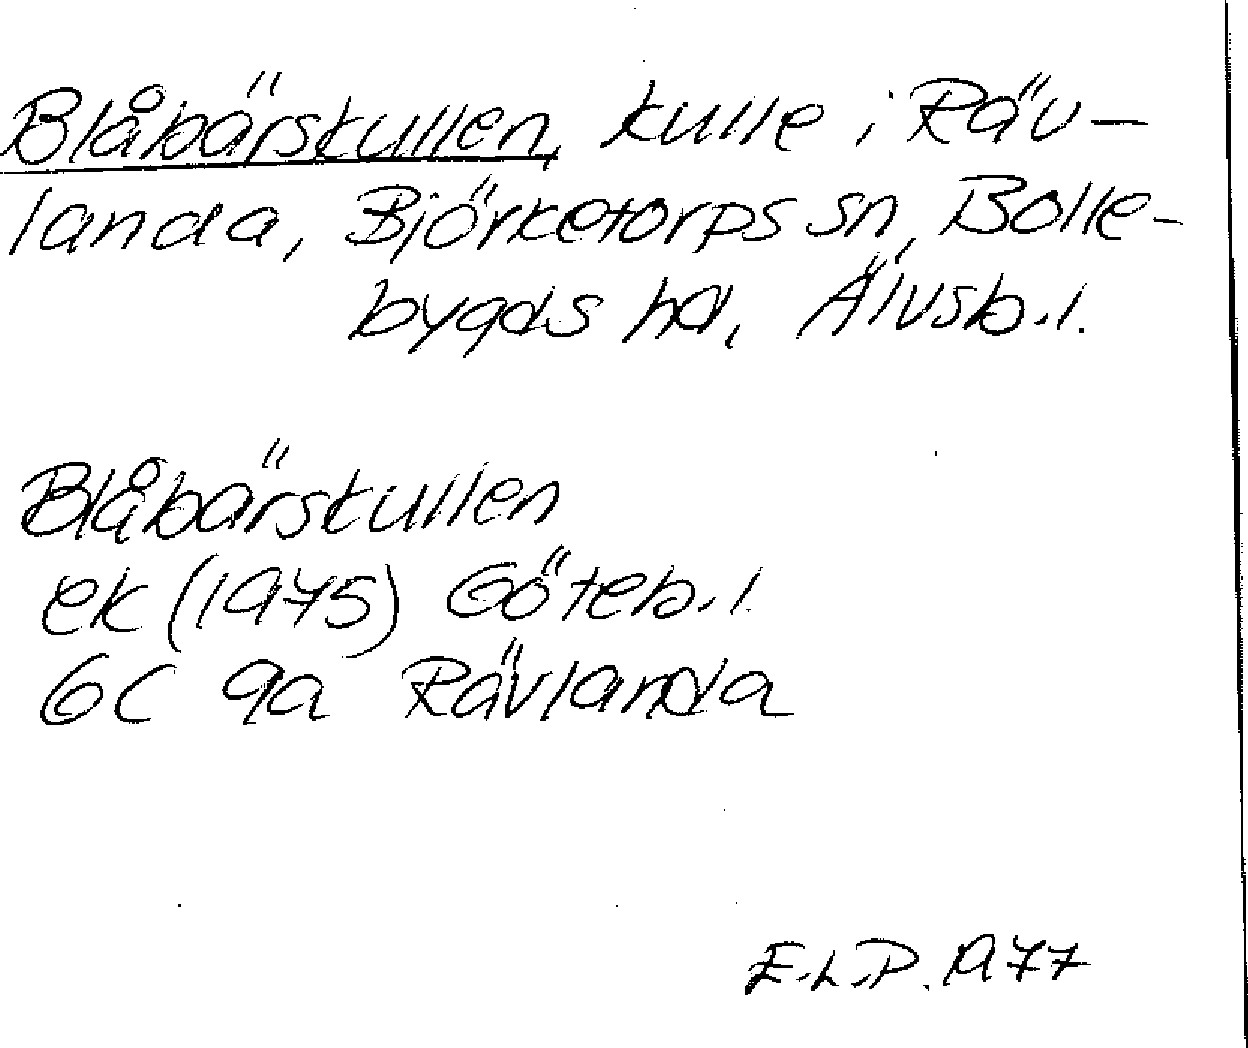 Blåbärskullen, kulle i Räv-
landa, Björketorps sn, Bolle-
bygds hd, Älvsb.l.
Blåbärskullen
ek (1975) Göteb.l.
6C 9a Rävlanda
E.L.P. 1977